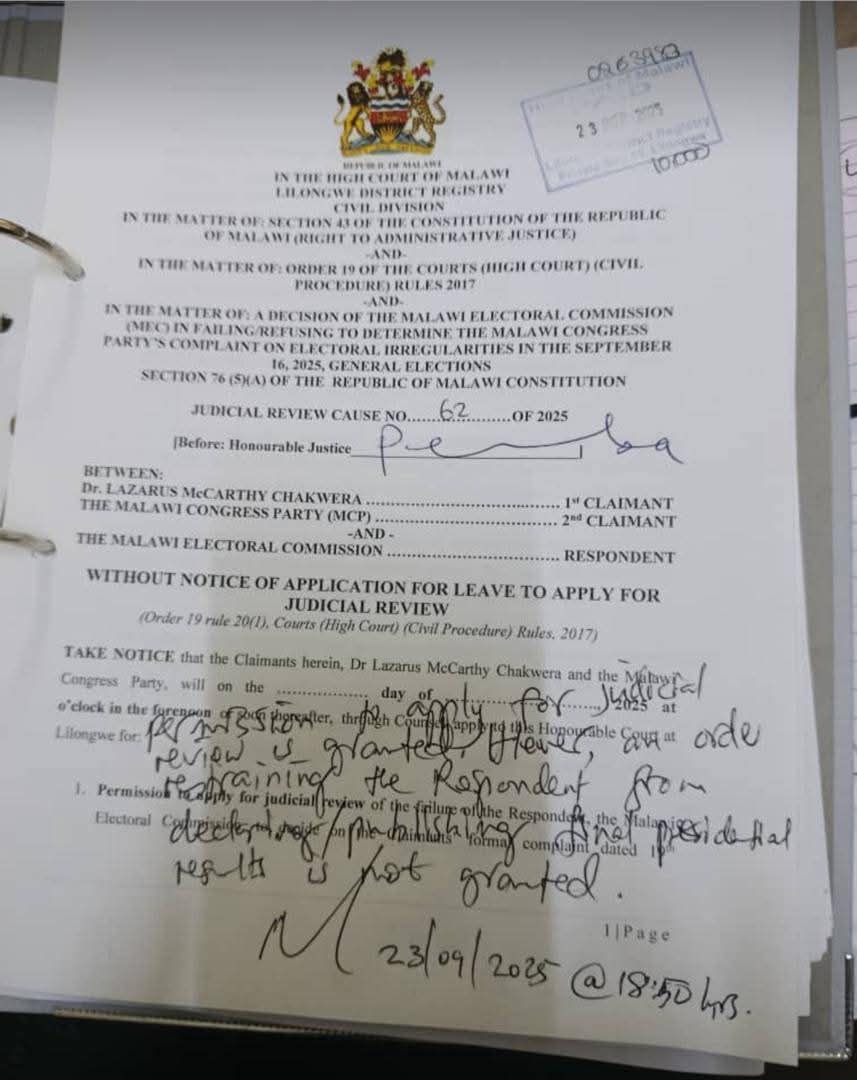 0263983
Malawi
23 2025
Registry
10,000
REPUBLIC OF MALAWI
IN THE HIGH COURT OF MALAWI
LILONGWE DISTRICT REGISTRY
CIVIL DIVISION
IN THE MATTER OF: SECTION 43 OF THE CONSTITUTION OF THE REPUBLIC
OF MALAWI (RIGHT TO ADMINISTRATIVE JUSTICE)
-AND-
IN THE MATTER OF: ORDER 19 OF THE COURTS (HIGH COURT) (CIVIL
PROCEDURE) RULES 2017
-AND-
IN THE MATTER OF: A DECISION OF THE MALAWI ELECTORAL COMMISSION
(MEC) IN FAILING/REFUSING TO DETERMINE THE MALAWI CONGRESS
PARTY'S COMPLAINT ON ELECTORAL IRREGULARITIES IN THE SEPTEMBER
16, 2025, GENERAL ELECTIONS
SECTION 76 (5)(A) OF THE REPUBLIC OF MALAWI CONSTITUTION
JUDICIAL REVIEW CAUSE NO......62..........OF 2025
[Before: Honourable Justice
BETWEEN:
Dr. LAZARUS McCARTHY CHAKWERA ........................................ 1st CLAIMANT
THE MALAWI CONGRESS PARTY (MCP) ..................................... 2nd CLAIMANT
-AND -
THE MALAWI ELECTORAL COMMISSION .................................... RESPONDENT
WITHOUT NOTICE OF APPLICATION FOR LEAVE TO APPLY FOR
JUDICIAL REVIEW
(Order 19 rule 20(1), Courts (High Court) (Civil Procedure) Rules, 2017)
TAKE NOTICE that the Claimants herein, Dr Lazarus McCarthy Chakwera and the Malawi
Congress Party, will on the .................. day of ........................., 2025 at
o'clock in the forenoon or soon thereafter, through Counsel apply to this Honourable Court at
Lilongwe for:
1. Permission to apply for judicial review of the failure of the Respondent, the Malawi
Electoral Commission, to decide on the claimants' formal complaint dated 19th
permission to apply for judicial
review is granted. However, an order
restraining the Respondent from
declaring/publishing final presidential
results is not granted.
23/09/2025 @ 18:50 hrs.
1 | Page